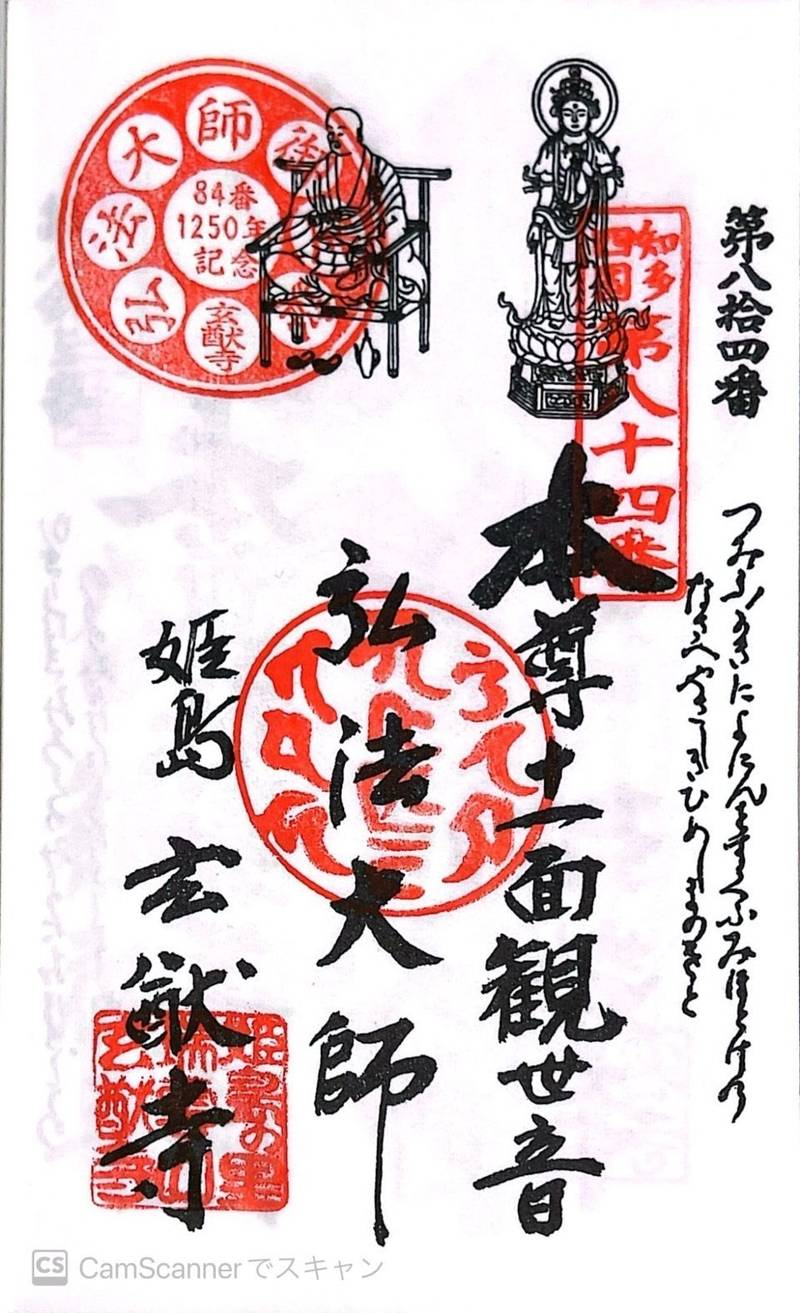 第八拾四番
つみふかきによにんをすくふみほとけの
なさへやさしきひめしまのさと
知多
四国
第八十四番
本尊十一面観世音
弘法大師
姫島
玄猷寺
弘法大師
84番
1250年
記念
玄猷寺
姫島の里
玄猷寺
CS CamScannerでスキャン